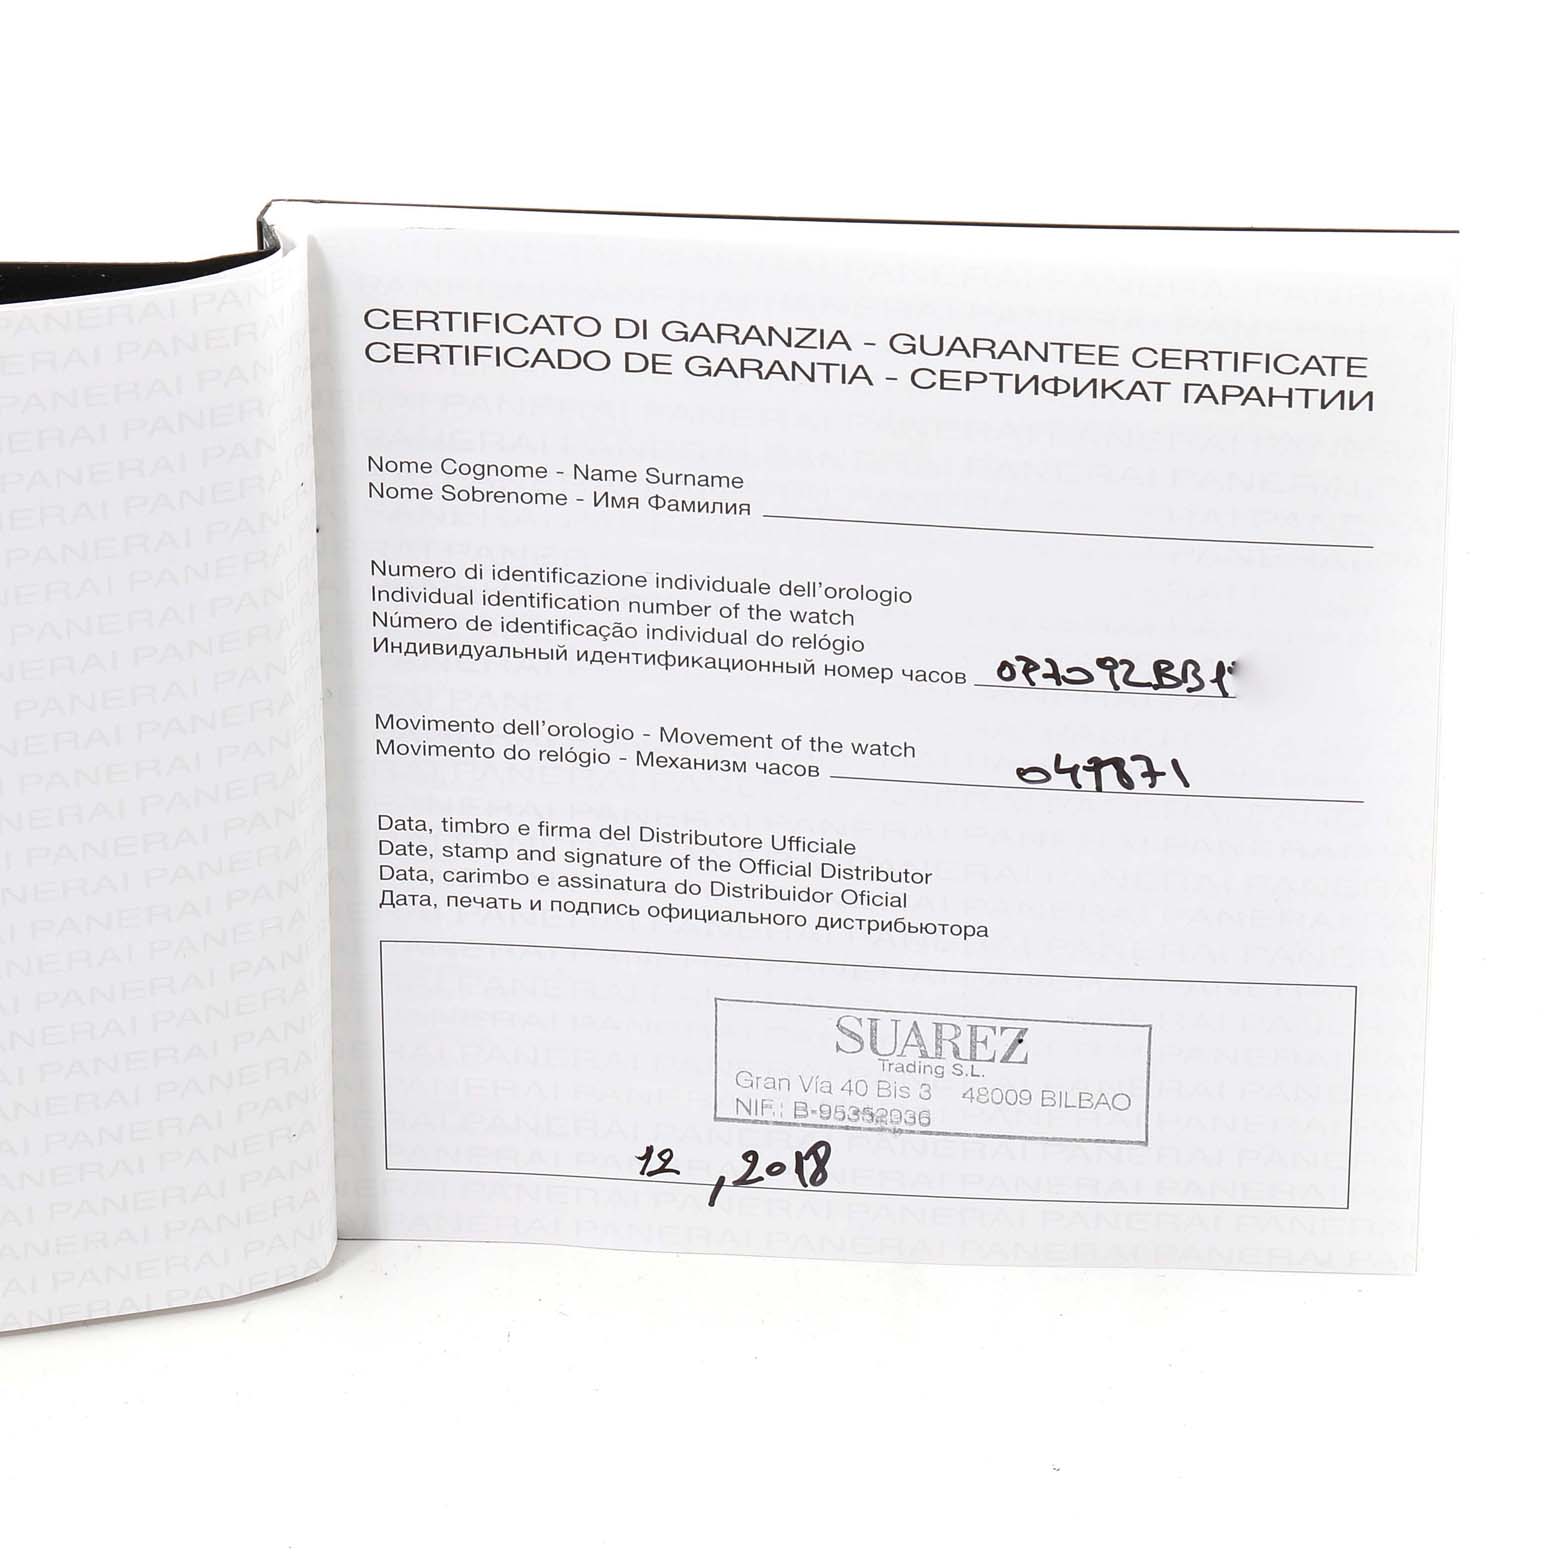 CERTIFICATO DI GARANZIA - GUARANTEE CERTIFICATE
CERTIFICADO DE GARANTIA - СЕРТИФИКАТ ГАРАНТИИ
Nome Cognome - Name Surname
Nome Sobrenome - Имя Фамилия
Numero di identificazione individuale dell'orologio
Individual identification number of the watch
Número de identificação individual do relógio
Индивидуальный идентификационный номер часов OP7092BB1
Movimento dell'orologio - Movement of the watch
Movimento do relógio - Механизм часов
Data, timbro e firma del Distributore Ufficiale
Date, stamp and signature of the Official Distributor
Data, carimbo e assinatura do Distribuidor Oficial
Дата, печать и подпись официального дистрибьютора
SUAREZ
Trading S.L.
Gran Vía 40 Bis 3 48009 BILBAO
NIF.: B-95352036
12, 2018